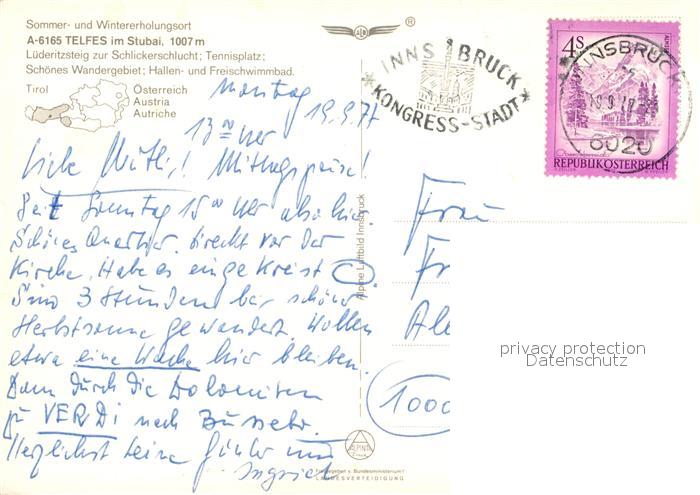 Sommer- und Wintererholungsort
A-6165 TELFES im Stubai, 1007 m
Lüderitzsteig zur Schlickerschlucht; Tennisplatz;
Schönes Wandergebiet; Hallen- und Freischwimmbad.
Tirol
Österreich
Austria
Autriche
Montag 19.9.77
13 00 Uhr
Liebe Mutti! Mittagspause!
Seit Sonntag 15 00 Uhr also hier
Schönes Quartier, direkt vor der
Kirche. Habe es eingekreist
Sind 3 Stunden bei schöner
Herbstsonne gewandert. Wollen
etwa eine Woche hier bleiben.
Dann durch die Dolomiten
zu VERDi nach Busseto.
Herzlichst Deine Günter und
Ingrid
ALD
®
INNSBRUCK
KONGRESS-STADT
4S
REPUBLIK ÖSTERREICH
INNSBRUCK
6020
Alpine Luftbild Innsbruck
Frau
Fr
Ale
1000
privacy protection
Datenschutz
ALPINE
Freigegeben v. Bundesministerium f.
LANDESVERTEIDIGUNG